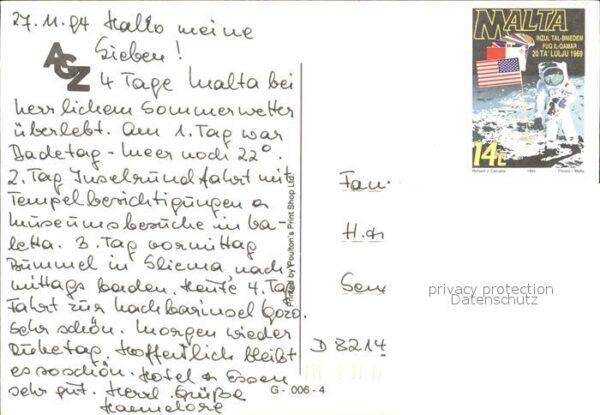 27.11.94 Hallo meine
Lieben!
AGZ
4 Tage Malta bei
herrlichem Sommerwetter
überlebt. Am 1. Tag war
Badetag - Meer noch 22°.
2. Tag Inselrundfahrt mit
Tempelbesichtigungen u
Museumsbesuche in Va-
letta. 3. Tag vormittag
Bummel in Sliema nach
mittags baden. Heute 4. Tag
Fahrt zur Nachbarinsel Gozo.
Sehr schön. Morgen wieder
Ruhetag. Hoffentlich bleibt
es so schön. Hotel u Essen
sehr gut. Herzl. Grüße
Hannelore
Printed by Poulton's Print Shop Ltd.
G - 006 - 4
MALTA
INZUL TAL-BNIEDEM
FUQ IL-QAMAR
20 TA' LULJU 1969
14c
Fam.
H.
D 8214
privacy protection
Datenschutz